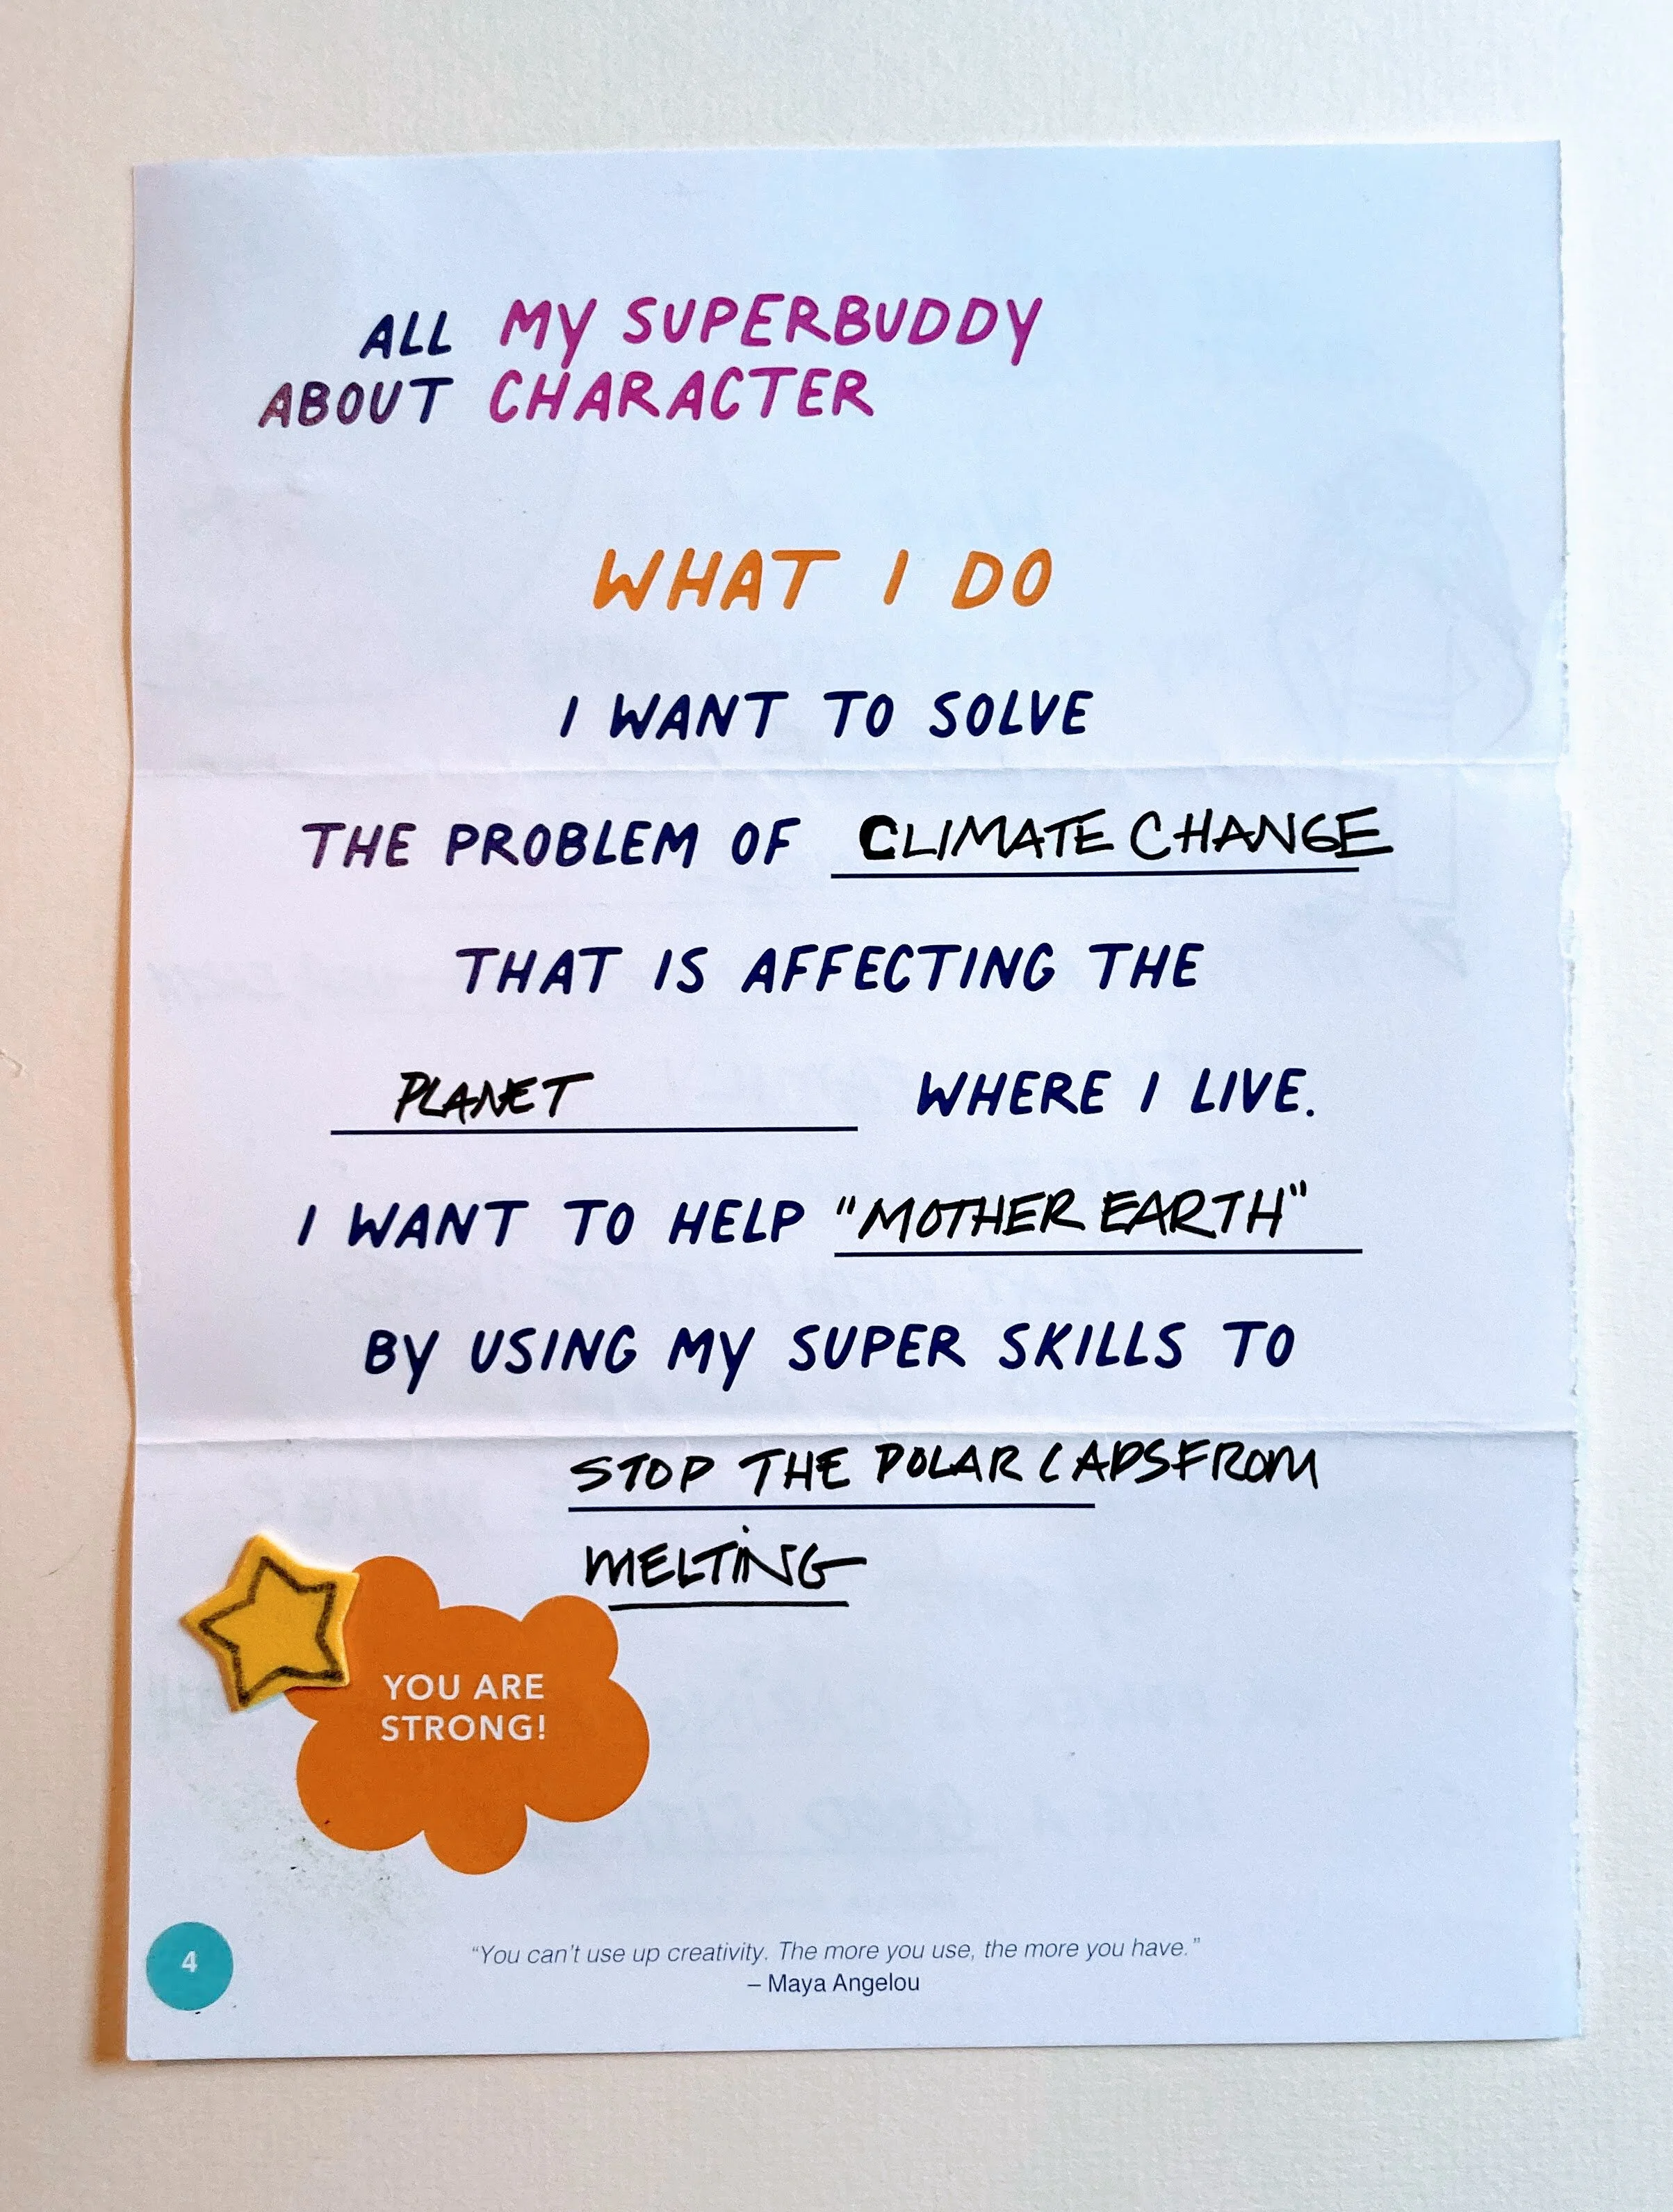 ALL MY SUPERBUDDY
ABOUT CHARACTER
WHAT I DO
I WANT TO SOLVE
THE PROBLEM OF CLIMATE CHANGE
THAT IS AFFECTING THE
PLANET WHERE I LIVE.
I WANT TO HELP "MOTHER EARTH"
BY USING MY SUPER SKILLS TO
STOP THE POLAR CAPS FROM
MELTING
YOU ARE
STRONG!
4
“You can’t use up creativity. The more you use, the more you have.”
– Maya Angelou